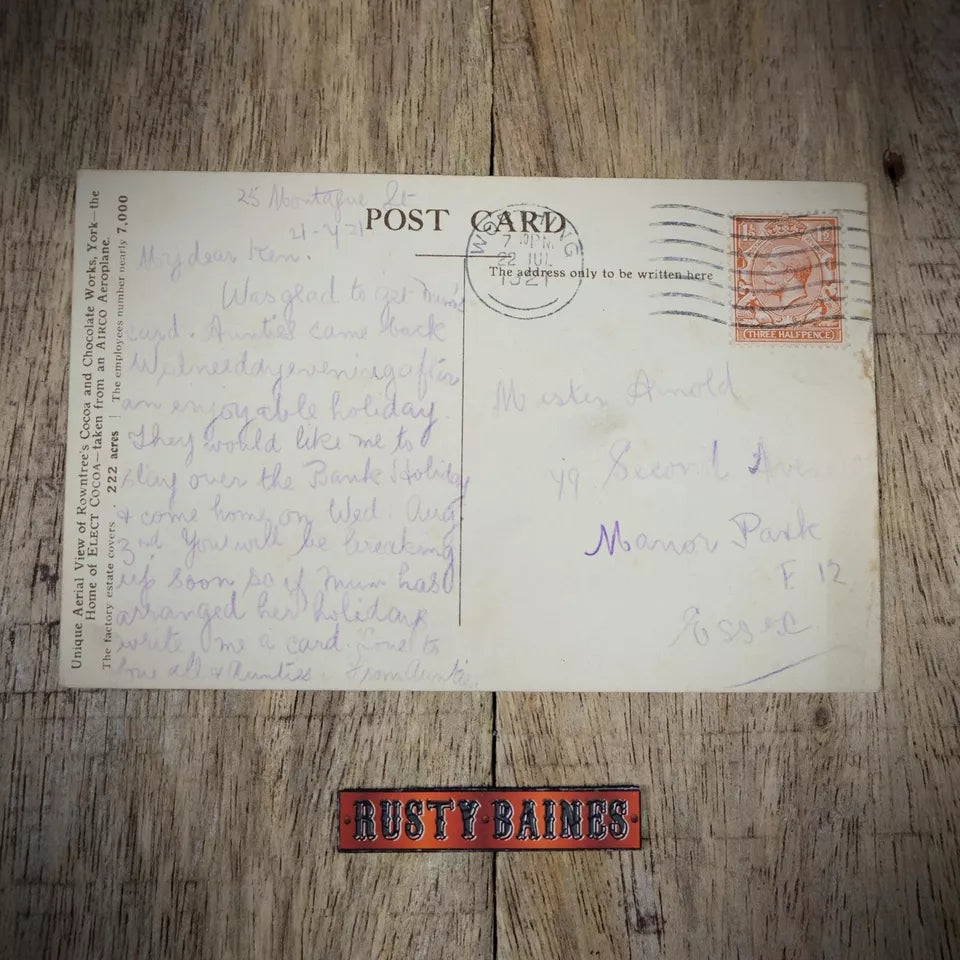 Unique Aerial View of Rowntree's Cocoa and Chocolate Works, York—the
Home of ELECT COCOA—taken from an AIRCO Aeroplane.
The factory estate covers . 222 acres | The employees number nearly 7,000
25 Montague St
POST CARD
My dear Ken.
Was glad to get
card. Aunties came back
Wednesday evening after
an enjoyable holiday.
They would like me to
stay over the Bank Holiday
& come home on Wed. Aug
3rd You will be breaking
up soon so if Mum has
arranged her holiday
write me a card. Love to
you all & Aunties. From Auntie.
WORTHING
7 30PM
22 JUL
1921
The address only to be written here
THREE HALFPENCE
Master Arnold
49 Second Ave
Manor Park
E 12
Essex
RUSTY BAINES